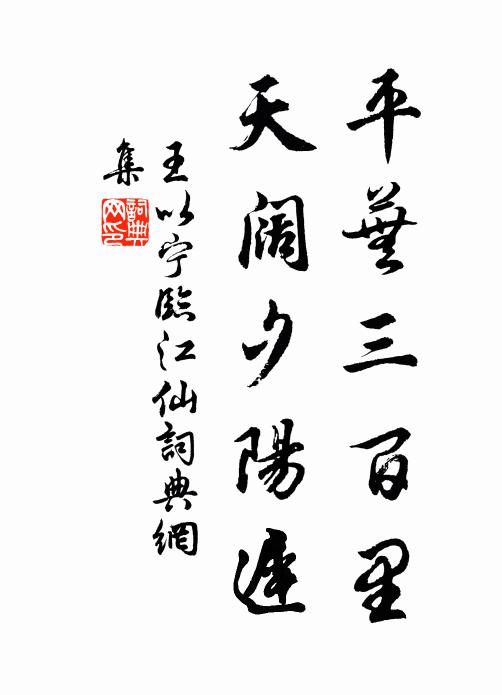 平蕪三百里
天闊夕陽遲
王以寧臨江仙詞典網
集
詞典
网印